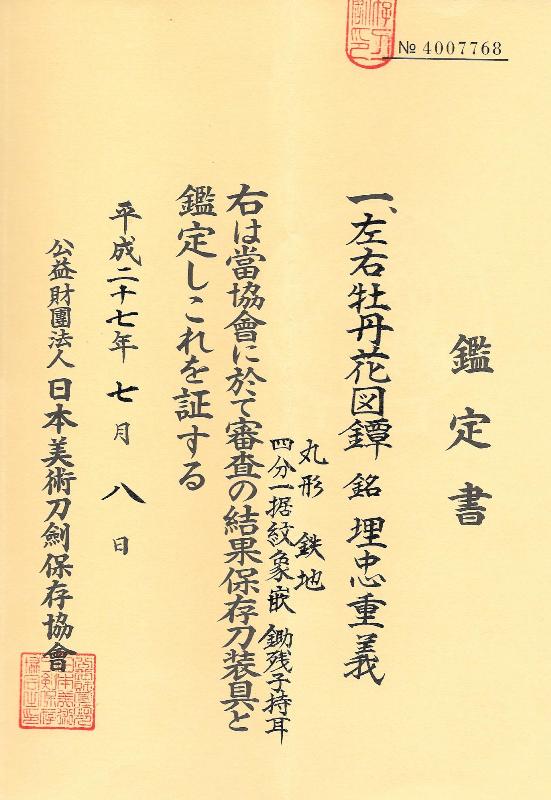 № 4007768
鑑定書
一、左右牡丹花図鐔 銘 埋忠重義
丸形 鉄地
四分一据紋象嵌 鋤残子持耳
右は當協會に於て審査の結果保存刀装具と
鑑定しこれを証する
平成二十七年 七月 八日
公益財團法人 日本美術刀劍保存協會